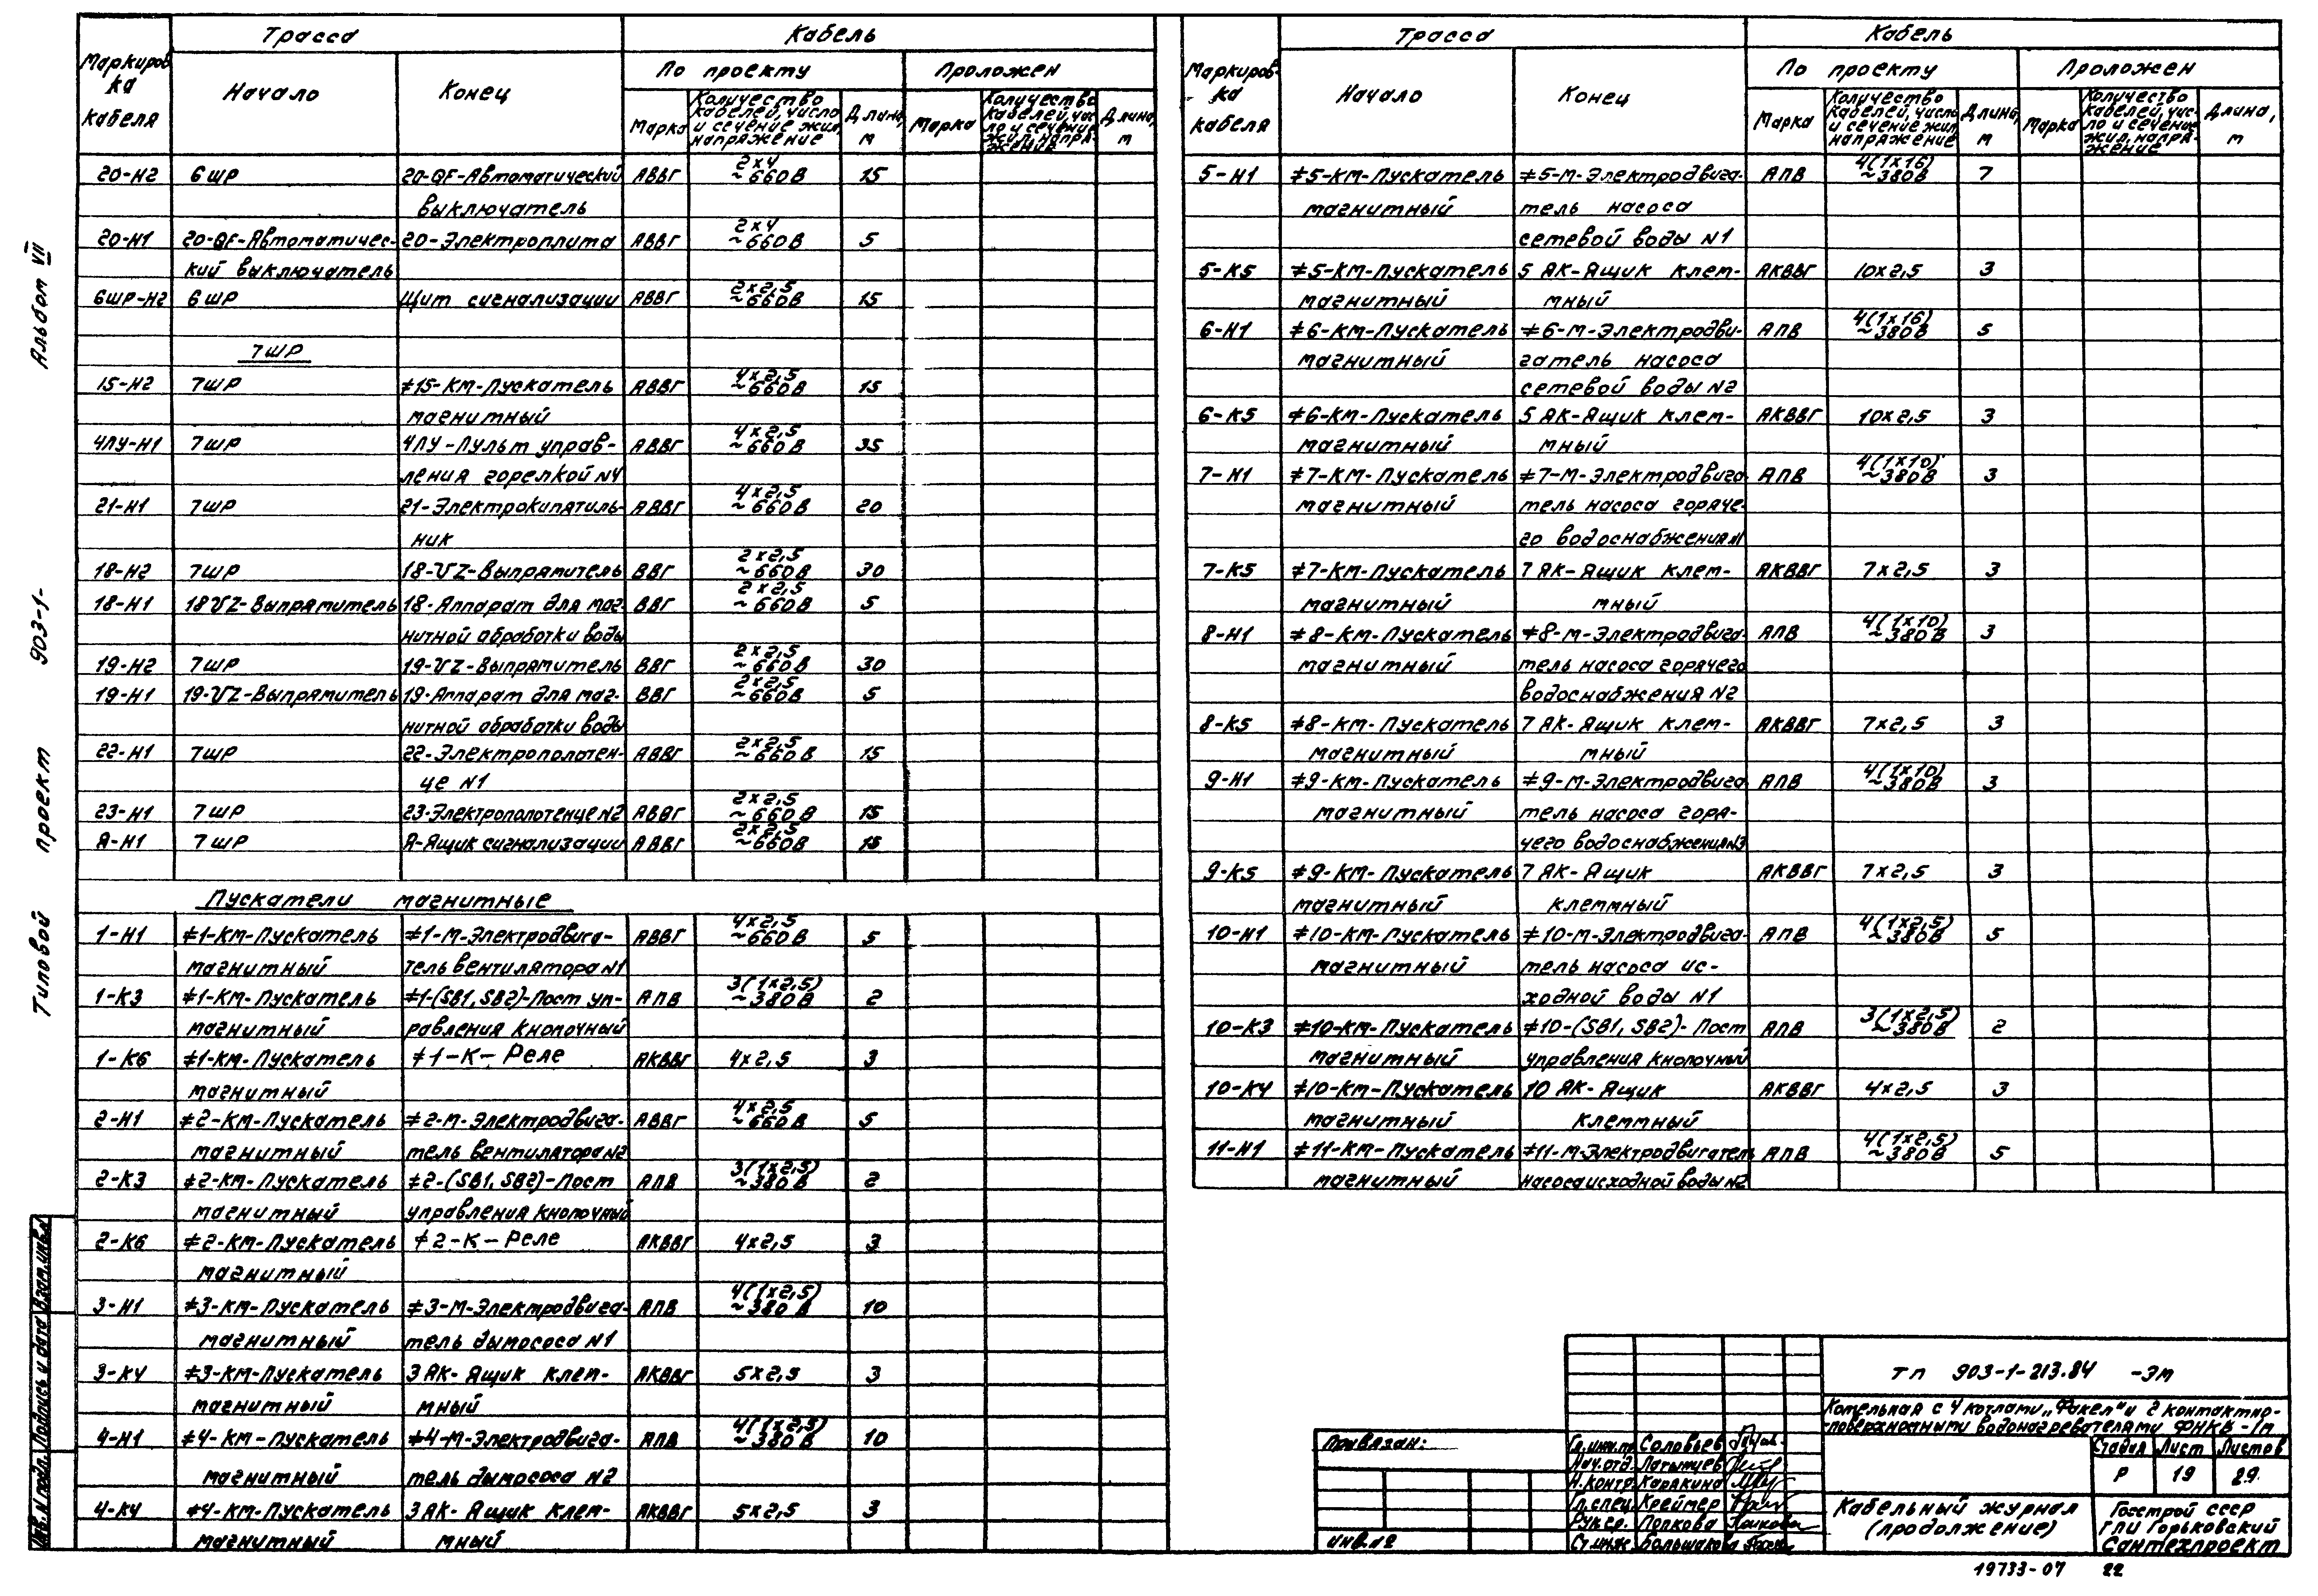 Альбом VII
903-1-
проект
Типовой
Взам.инв.N
Подпись и дата
Инв.N подл.
Маркировка кабеля | Трасса | Кабель
Начало | Конец | По проекту | Проложен
Марка | Количество кабелей, число и сечение жил, напряжение | Длина, м | Марка | Количество кабелей, число и сечение жил, напряжение | Длина, м
20-Н2 | 6ШР | 20-QF-Автоматический | АВВГ | 2х4 ~660В | 15
выключатель
20-Н1 | 20-QF-Автоматичес- | 20-Электроплита | АВВГ | 2х4 ~660В | 5
кий выключатель
6ШР-Н2 | 6ШР | Щит сигнализации | АВВГ | 2х2,5 ~660В | 15
7ШР
15-Н2 | 7ШР | ≠15-КМ-Пускатель | АВВГ | 4х2,5 ~660В | 15
магнитный
4ПУ-Н1 | 7ШР | 4ПУ-Пульт управ- | АВВГ | 4х2,5 ~660В | 35
ления горелкой N4
21-Н1 | 7ШР | 21-Электрокипятиль- | АВВГ | 4х2,5 ~660В | 20
ник
18-Н2 | 7ШР | 18-VZ-Выпрямитель | ВВГ | 2х2,5 ~660В | 30
18-Н1 | 18VZ-Выпрямитель | 18-Аппарат для маг- | ВВГ | 2х2,5 ~660В | 5
нитной обработки воды
19-Н2 | 7ШР | 19-VZ-Выпрямитель | ВВГ | 2х2,5 ~660В | 30
19-Н1 | 19-VZ-Выпрямитель | 19-Аппарат для маг- | ВВГ | 2х2,5 ~660В | 5
нитной обработки воды
22-Н1 | 7ШР | 22-Электрополотен- | АВВГ | 2х2,5 ~660В | 15
це N1
23-Н1 | 7ШР | 23-Электрополотенце N2 | АВВГ | 2х2,5 ~660В | 15
А-Н1 | 7ШР | А-Ящик сигнализации | АВВГ | 2х2,5 ~660В | 15
Пускатели магнитные
1-Н1 | ≠1-КМ-Пускатель | ≠1-М-Электродвига- | АВВГ | 4х2,5 ~660В | 5
магнитный | тель вентилятора N1
1-К3 | ≠1-КМ-Пускатель | ≠1-(SB1, SB2)-Пост уп- | АПВ | 3(1х2,5) ~380В | 2
магнитный | равления кнопочный
1-К6 | ≠1-КМ-Пускатель | ≠1-К-Реле | АКВВГ | 4х2,5 | 3
магнитный
2-Н1 | ≠2-КМ-Пускатель | ≠2-М-Электродвига- | АВВГ | 4х2,5 ~660В | 5
магнитный | тель вентилятора N2
2-К3 | ≠2-КМ-Пускатель | ≠2-(SB1, SB2)-Пост | АПВ | 3(1х2,5) ~380В | 2
магнитный | управления кнопочный
2-К6 | ≠2-КМ-Пускатель | ≠2-К-Реле | АКВВГ | 4х2,5 | 3
магнитный
3-Н1 | ≠3-КМ-Пускатель | ≠3-М-Электродвига- | АПВ | 4(1х2,5) ~380В | 10
магнитный | тель дымососа N1
3-К4 | ≠3-КМ-Пускатель | 3АК-Ящик клем- | АКВВГ | 5х2,5 | 3
магнитный | мный
4-Н1 | ≠4-КМ-Пускатель | ≠4-М-Электродвига- | АПВ | 4(1х2,5) ~380В | 10
магнитный | тель дымососа N2
4-К4 | ≠4-КМ-Пускатель | 3АК-Ящик клем- | АКВВГ | 5х2,5 | 3
магнитный | мный
Маркировка кабеля | Трасса | Кабель
Начало | Конец | По проекту | Проложен
Марка | Количество кабелей, число и сечение жил, напряжение | Длина, м | Марка | Количество кабелей, число и сечение жил, напряжение | Длина, м
5-Н1 | ≠5-КМ-Пускатель | ≠5-М-Электродвига- | АПВ | 4(1х16) ~380В | 7
магнитный | тель насоса
сетевой воды N1
5-К5 | ≠5-КМ-Пускатель | 5АК-Ящик клем- | АКВВГ | 10х2,5 | 3
магнитный | мный
6-Н1 | ≠6-КМ-Пускатель | ≠6-М-Электродви- | АПВ | 4(1х16) ~380В | 5
магнитный | гатель насоса
сетевой воды N2
6-К5 | ≠6-КМ-Пускатель | 5АК-Ящик клем- | АКВВГ | 10х2,5 | 3
магнитный | мный
7-Н1 | ≠7-КМ-Пускатель | ≠7-М-Электродвига- | АПВ | 4(1х10) ~380В | 3
магнитный | тель насоса горяче-
го водоснабжения N1
7-К5 | ≠7-КМ-Пускатель | 7АК-Ящик клем- | АКВВГ | 7х2,5 | 3
магнитный | мный
8-Н1 | ≠8-КМ-Пускатель | ≠8-М-Электродвига- | АПВ | 4(1х10) ~380В | 3
магнитный | тель насоса горячего
водоснабжения N2
8-К5 | ≠8-КМ-Пускатель | 7АК-Ящик клем- | АКВВГ | 7х2,5 | 3
магнитный | мный
9-Н1 | ≠9-КМ-Пускатель | ≠9-М-Электродвига- | АПВ | 4(1х10) ~380В | 3
магнитный | тель насоса горя-
чего водоснабжения N3
9-К5 | ≠9-КМ-Пускатель | 7АК-Ящик | АКВВГ | 7х2,5 | 3
магнитный | клеммный
10-Н1 | ≠10-КМ-Пускатель | ≠10-М-Электродвига- | АПВ | 4(1х2,5) ~380В | 5
магнитный | тель насоса ис-
ходной воды N1
10-К3 | ≠10-КМ-Пускатель | ≠10-(SB1, SB2)-Пост | АПВ | 3(1х2,5) ~380В | 2
магнитный | управления кнопочный
10-К4 | ≠10-КМ-Пускатель | 10АК-Ящик | АКВВГ | 4х2,5 | 3
магнитный | клеммный
11-Н1 | ≠11-КМ-Пускатель | ≠11-М-Электродвигатель | АПВ | 4(1х2,5) ~380В | 5
магнитный | насоса исходной воды N2
ТП 903-1-213.84 -ЭМ
Котельная с 4 котлами „Факел" и 2 контактно-
поверхностными водонагревателями ФНКВ-1м
Стадия | Лист | Листов
Р | 19 | 29
Кабельный журнал
(продолжение)
Госстрой СССР
ГПИ Горьковский
Сантехпроект
Привязан:
Инв.N
Гл.инж.пр. Соловьев
Нач.отд. Латышев
Н.контр. Карякина
Гл.спец. Креймер
Рук.гр. Попкова
Ст.инж. Большакова
19733-07 22